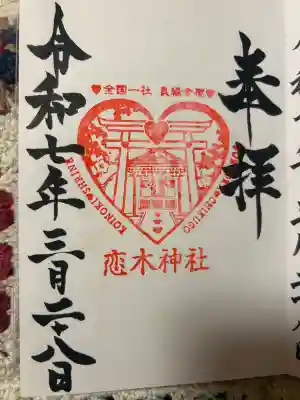 奉拝
♥全国一社 良縁幸福♥
KOINOKI♥SHRINE
♥CHIKUGO
恋木神社
令和七年三月二十八日